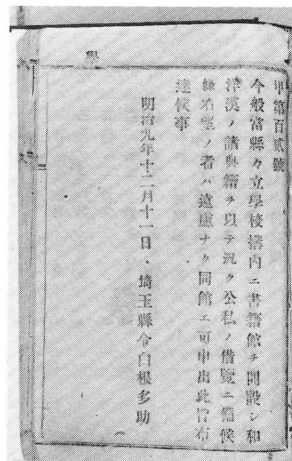 學
甲第百貳號
今般當縣立學校搆内ニ書籍館ヲ開設シ和
洋漢ノ諸典籍ヲ以テ汎ク公私ノ借覽ニ備候
條有望ノ者ハ遠慮ナク同館エ可申出此旨布
達候事
明治九年十二月十一日、埼玉縣令白根多助